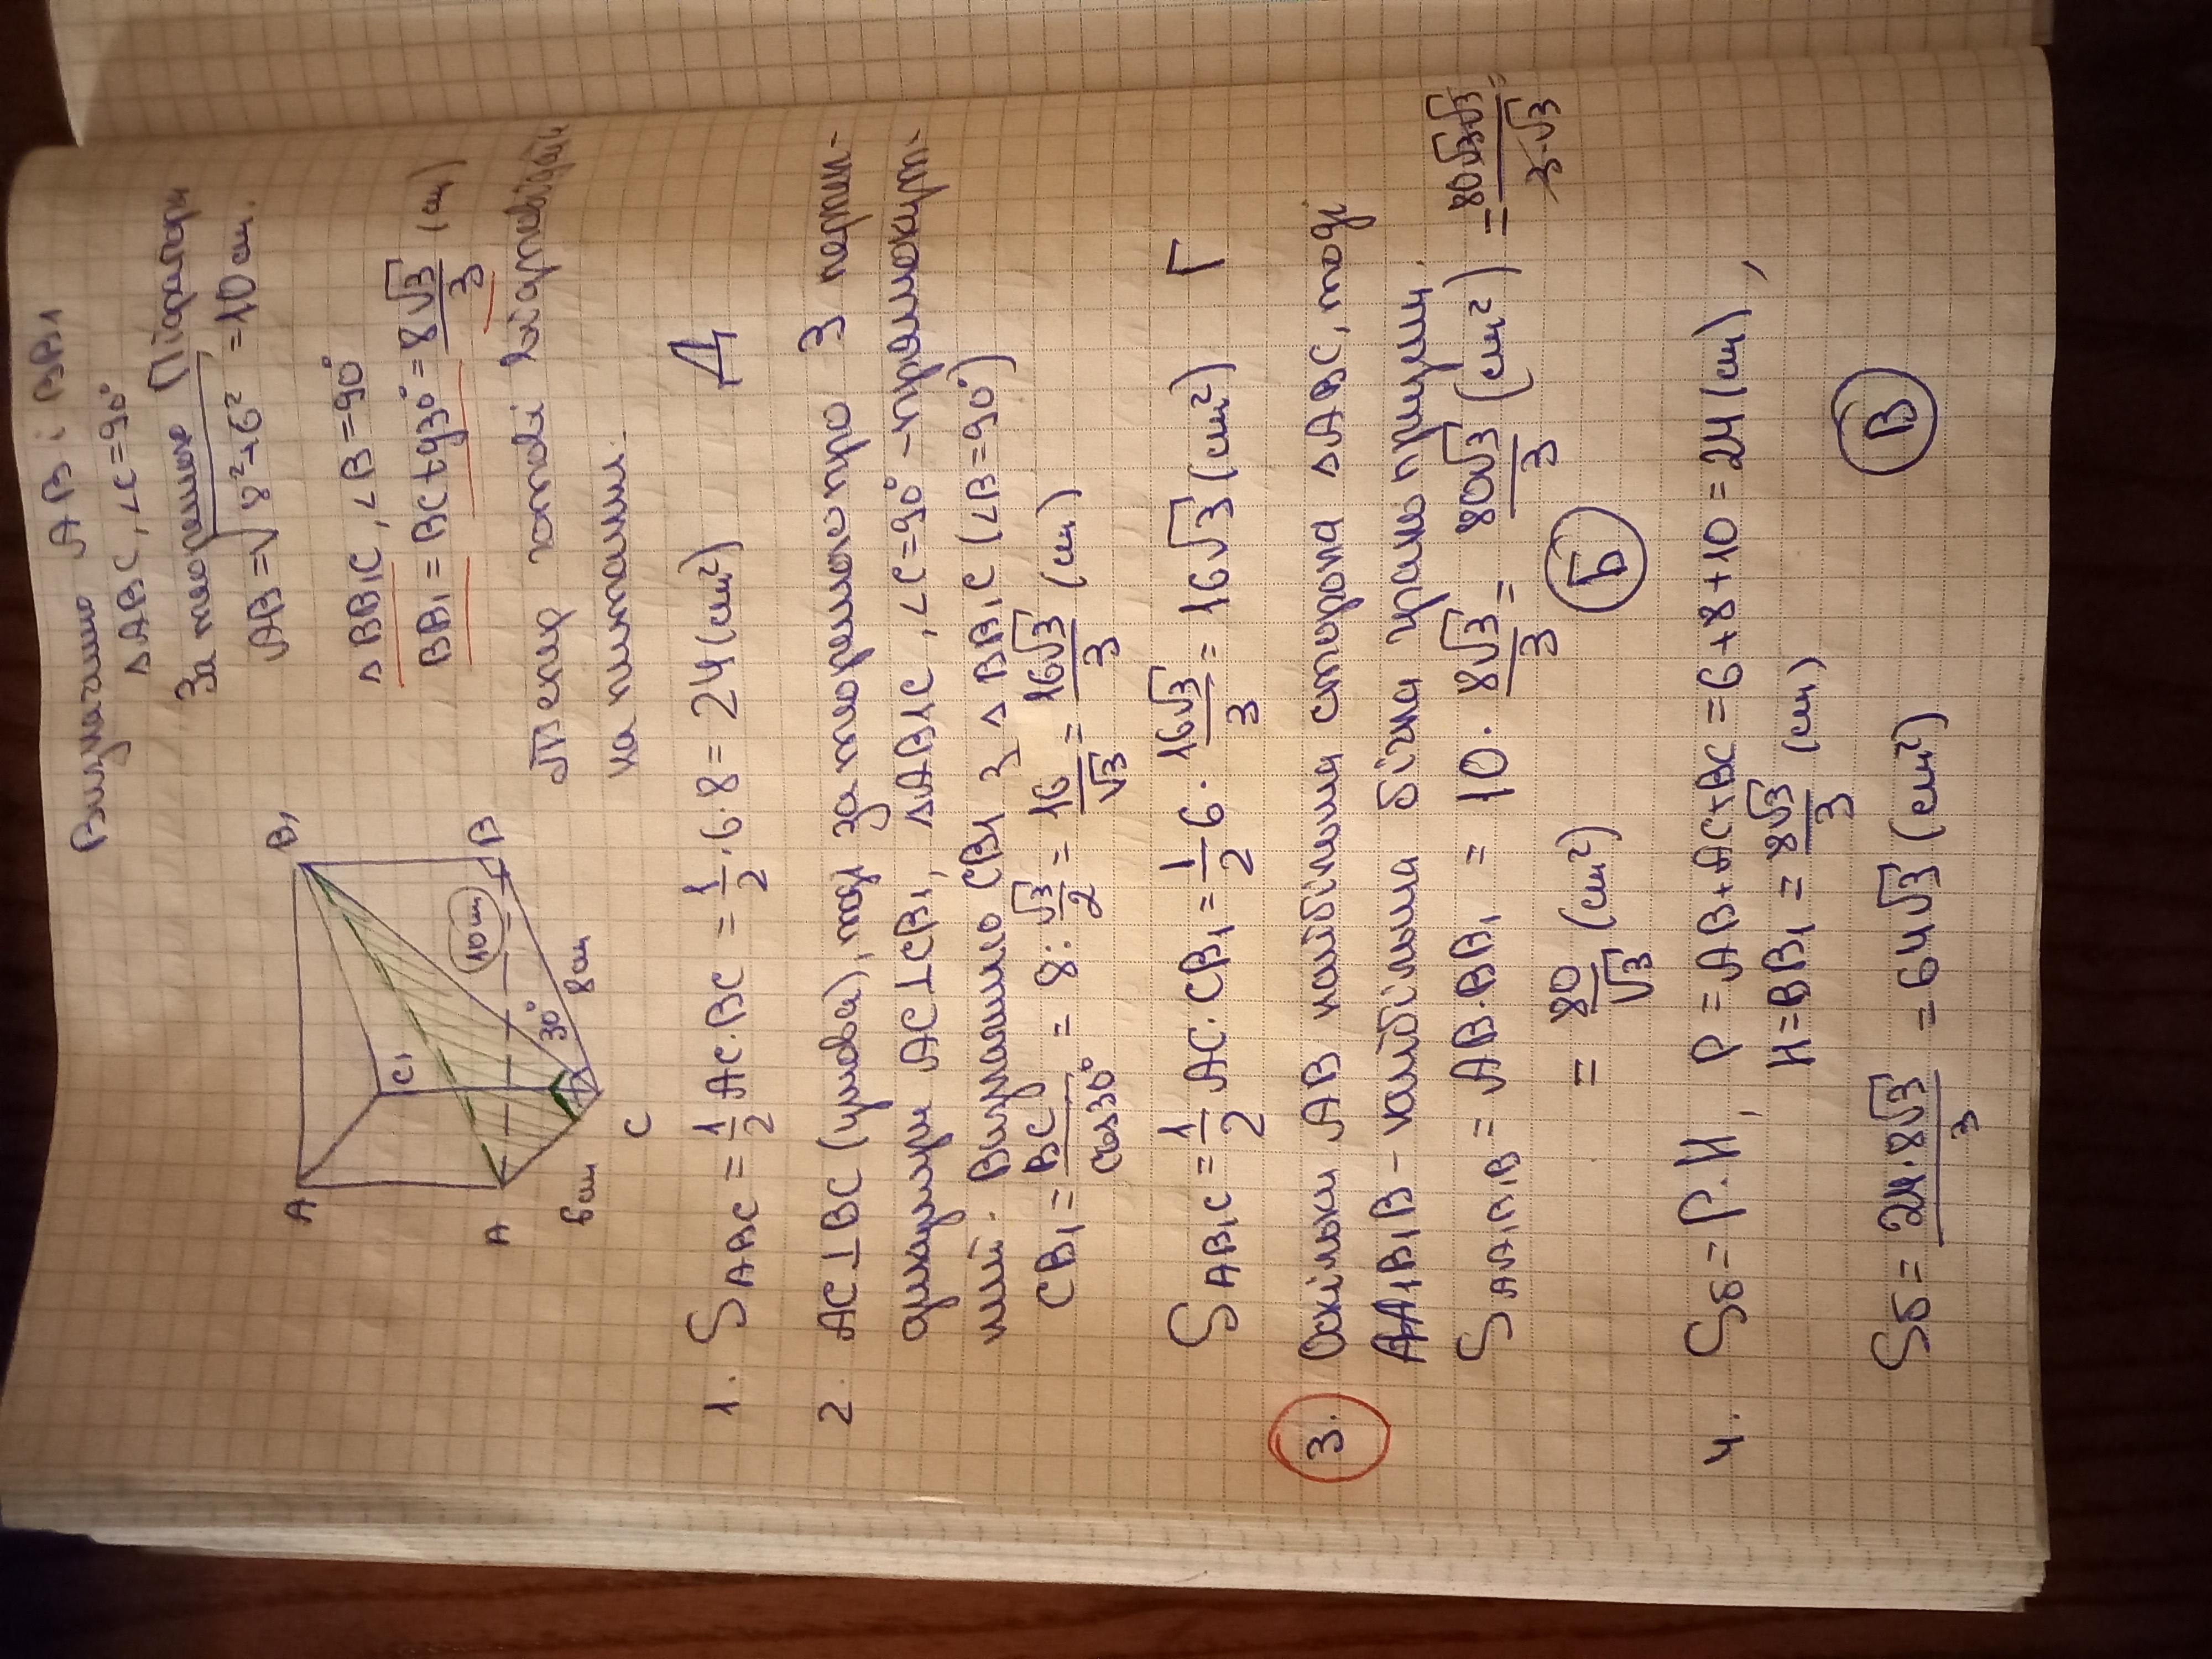 Визначимо AB і BB1
△ABC, ∠C=90°
За теоремою Піфагора
AB=√8²+6² =10 см.
△BB1C, ∠B=90°
BB1=BC tg30°= 8√3/3 (см)
Тепер готові відповідати
на питання.
A
B1
C1
10 см
A
B
30°
8 см
6 см
C
1. SABC = 1/2 AC·BC = 1/2·6·8=24(см²) Д
2. AC⊥BC (умова), тоді за теоремою про 3 перпен-
дикуляри AC⊥CB1, △AB1C, ∠C=90°-прямокут-
ний. Визначимо CB1 з △BB1C (∠B=90°)
CB1= BC/cos30° = 8: √3/2 = 16/√3 = 16√3/3 (см)
SAB1C= 1/2 AC·CB1= 1/2 6· 16√3/3 = 16√3(см²) Г
3. Оскільки AB найбільша сторона △ABC, тоді
AA1B1B - найбільша бічна грань призми.
SAA1B1B= AB·BB1 = 10· 8√3/3 = 80√3/3 (см²) = 80√3·√3/3·√3 =
= 80/√3 (см²) Б
4. Sб=P·H, P=AB+AC+BC=6+8+10=24(см),
H=BB1 = 8√3/3 (см)
Sб= 24·8√3/3 = 64√3 (см²) В